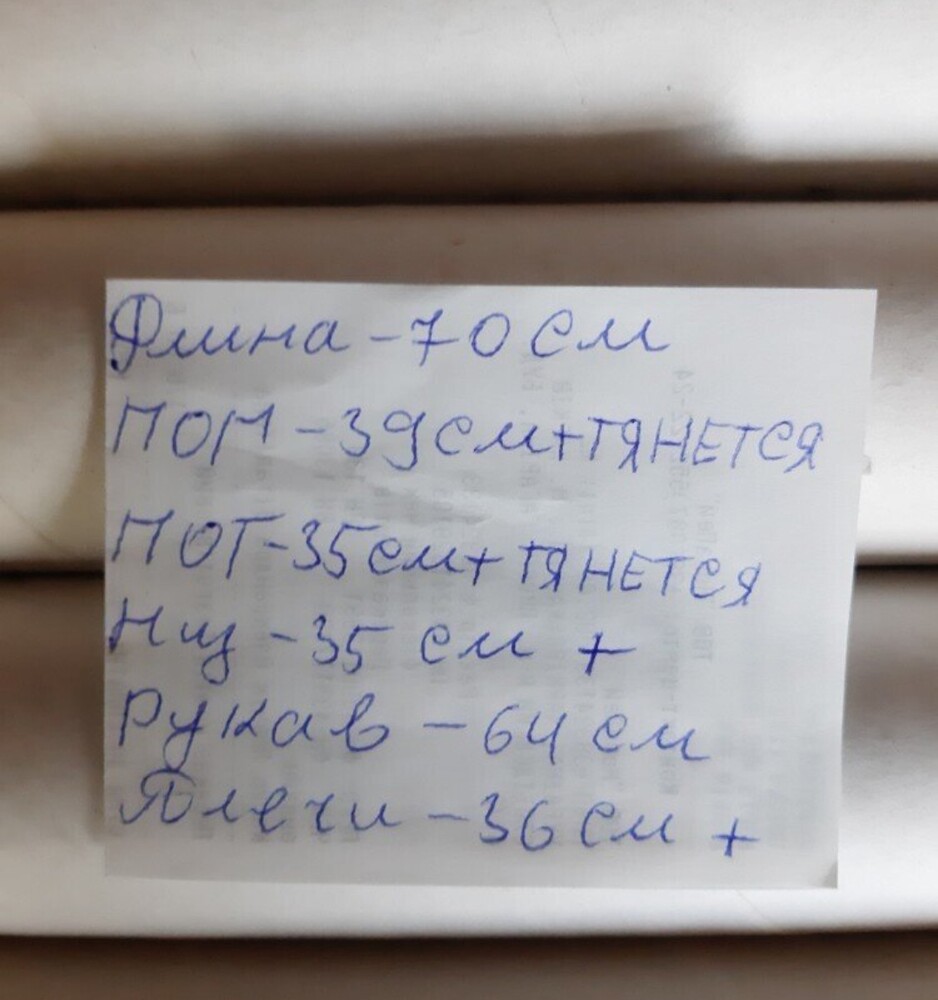 Длина - 70 см
ПОГ - 39 см + ТЯНЕТСЯ
ПОТ - 35 см + ТЯНЕТСЯ
Низ - 35 см +
Рукав - 64 см
Плечи - 36 см +